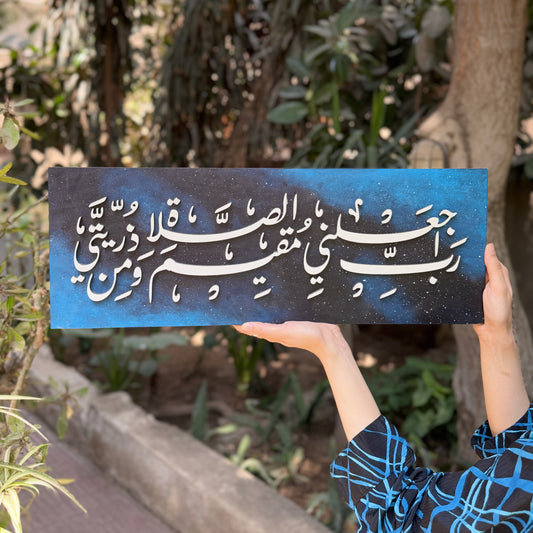 رَبِّ اجْعَلْنِي مُقِيمَ الصَّلَاةِ وَمِنْ ذُرِّيَّتِي